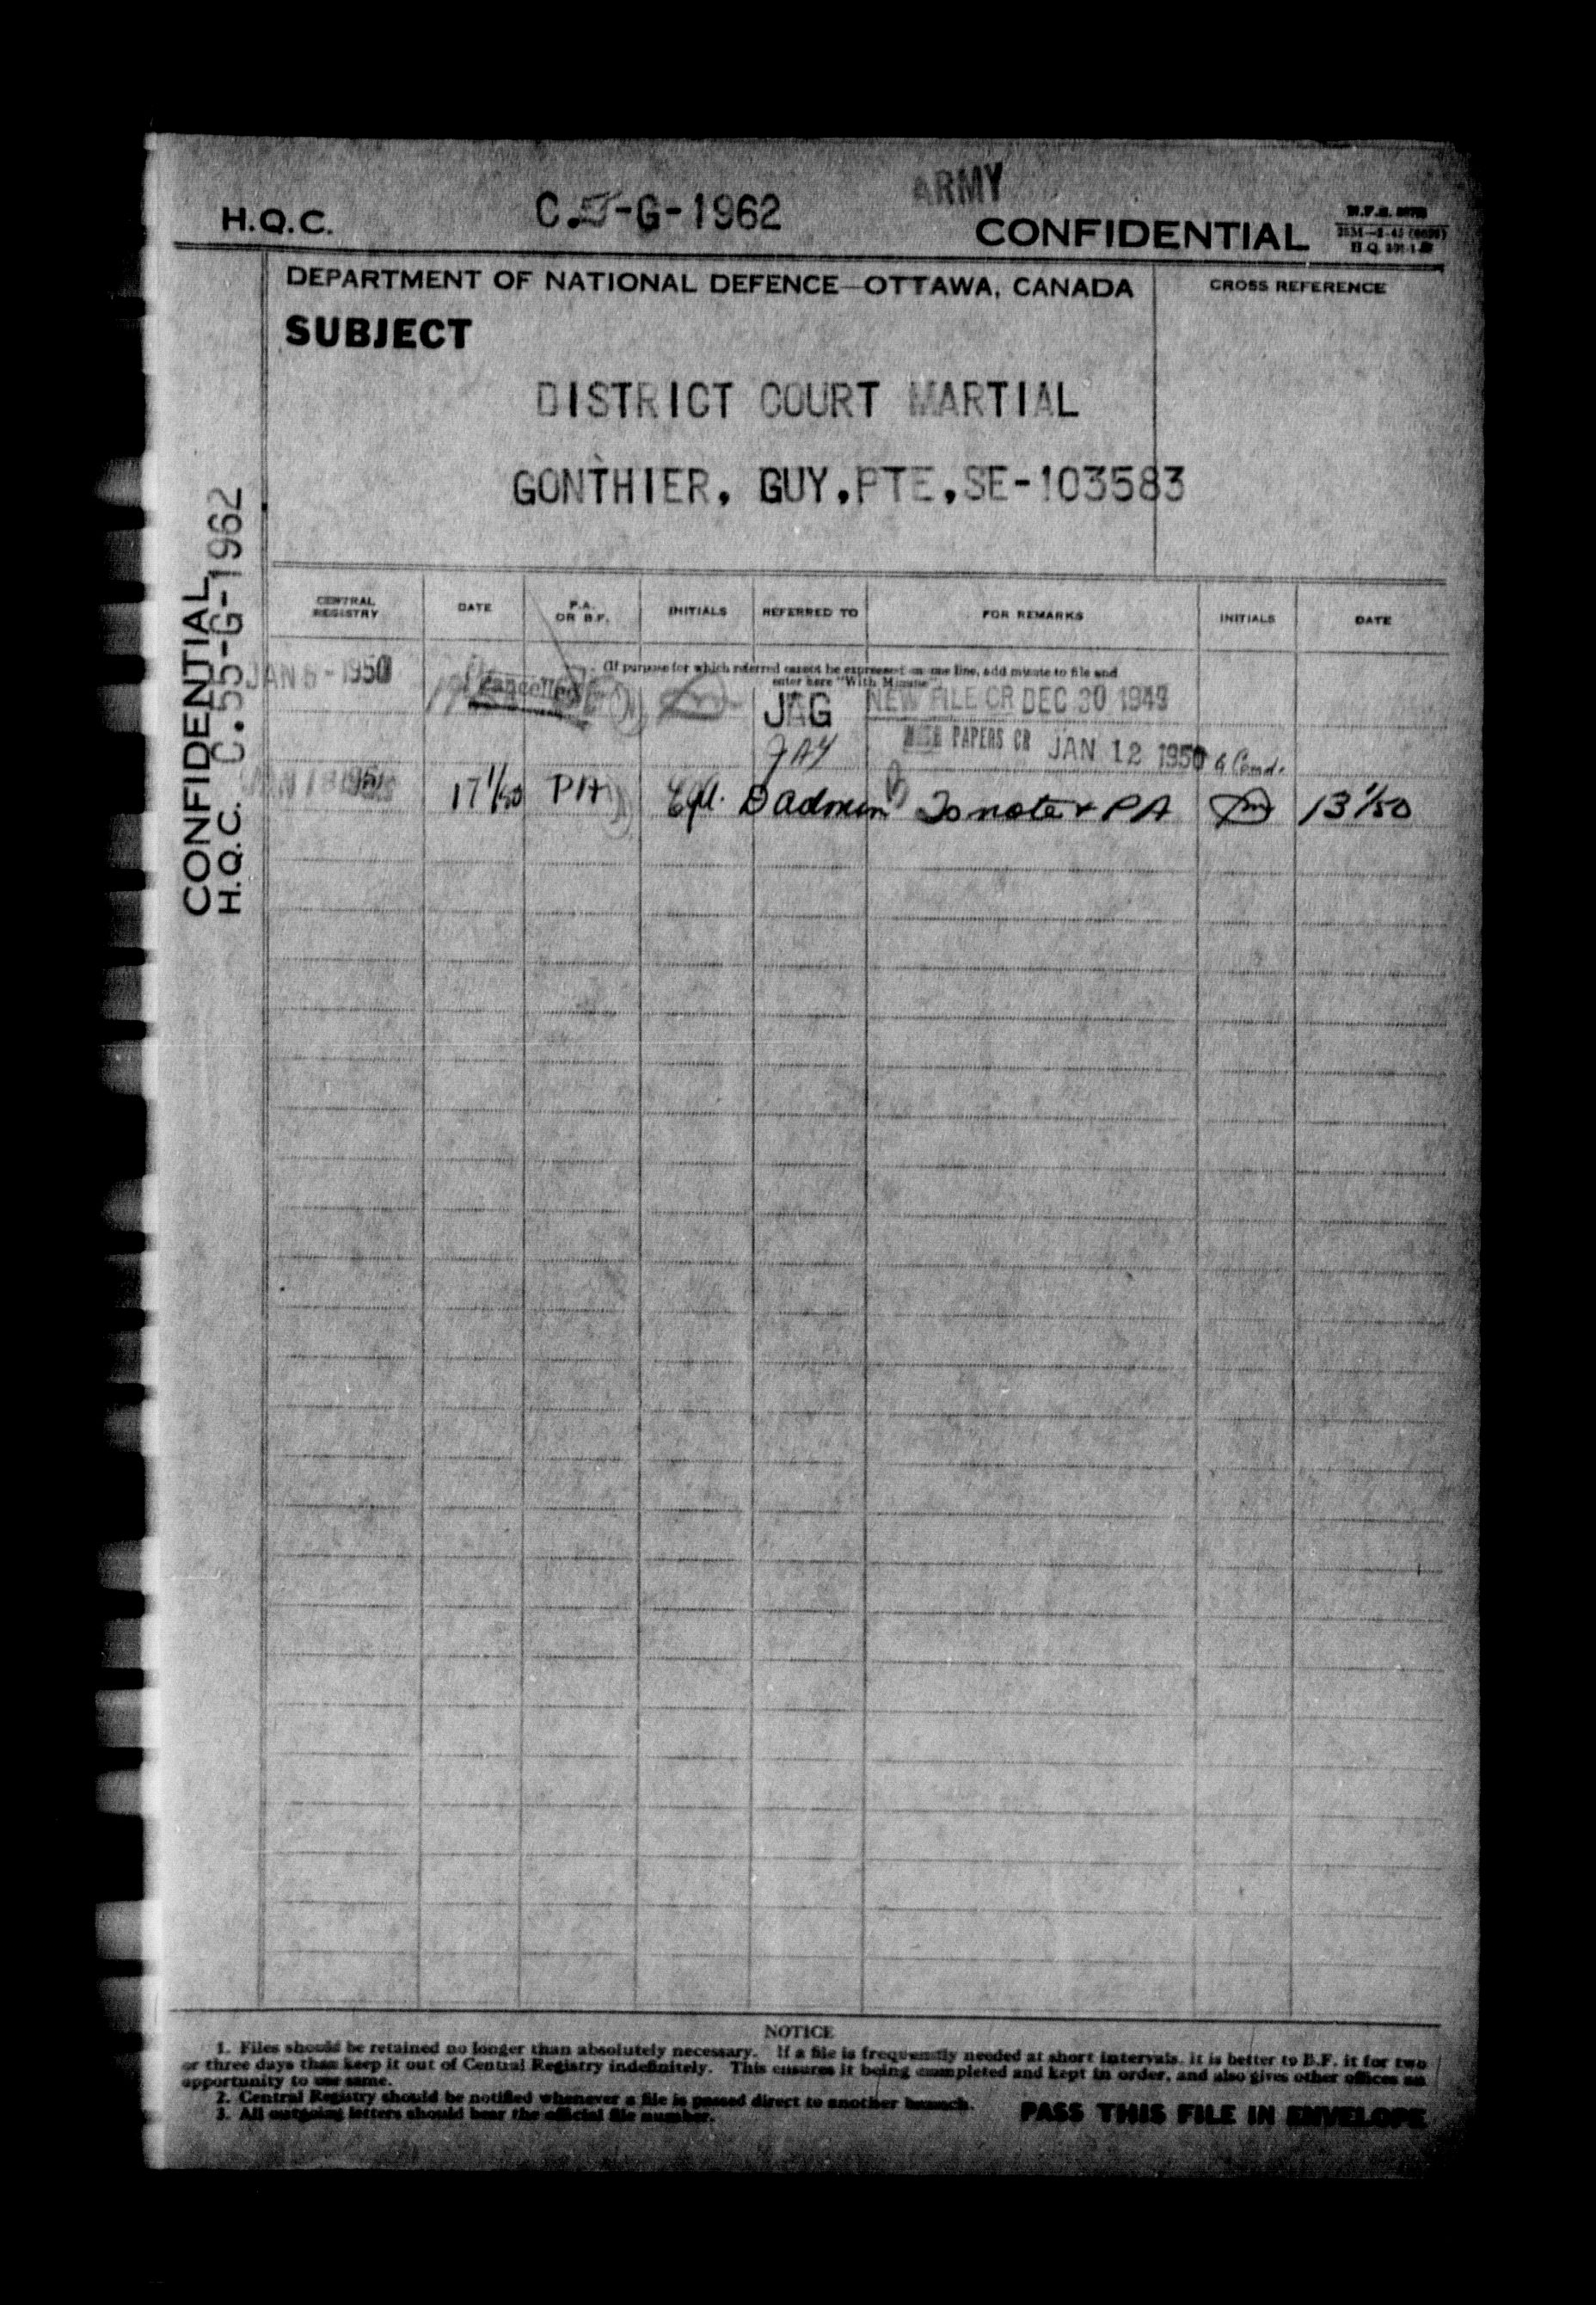 ARMY
H.Q.C. C.55-G-1962 CONFIDENTIAL
DEPARTMENT OF NATIONAL DEFENCE—OTTAWA, CANADA
CROSS REFERENCE
SUBJECT
DISTRICT COURT MARTIAL
GONTHIER, GUY, PTE, SE-103583
CONFIDENTIAL
H.Q.C. C.55-G-1962
CENTRAL REGISTRY DATE P.A. OR B.F. INITIALS REFERRED TO FOR REMARKS INITIALS DATE
(If purpose for which referred cannot be expressed on one line, add minute to file and
enter here "With Minute"
JAN 5-1950 Cancelled JAG NEW FILE CR DEC 30 1949
JAG PAPERS CR JAN 12 1950
17 1/50 PA D admin To note & PA 13 1/50
NOTICE
1. Files should be retained no longer than absolutely necessary. If a file is frequently needed at short intervals, it is better to B.F. it for two
or three days than keep it out of Central Registry indefinitely. This ensures it being completed and kept in order, and also gives other offices an
opportunity to use same.
2. Central Registry should be notified whenever a file is passed direct to another branch.
3. All outgoing letters should bear the official file number.
PASS THIS FILE IN ENVELOPE